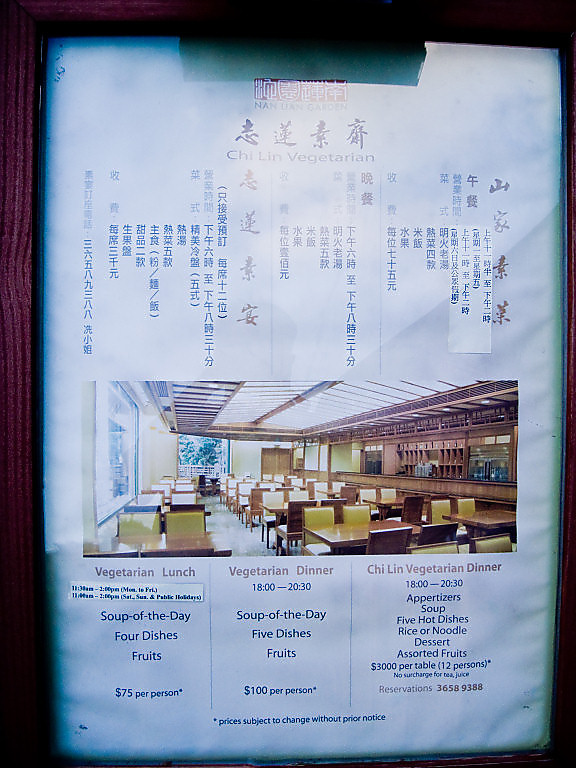 NAN LIAN GARDEN
志蓮素齋
Chi Lin Vegetarian
山家素菜
午餐
營業時間：
上午十一時半 至 下午二時
（星期一至星期五）
上午十一時 至 下午二時
（星期六日及公眾假期）
菜 式：明火老湯
熱菜四款
米飯
水果
收 費：每位七十五元
晚餐
營業時間：下午六時 至 下午八時三十分
菜 式：明火老湯
熱菜五款
米飯
水果
收 費：每位壹佰元
志蓮素宴
（只接受預訂 每席十二位）
營業時間：下午六時 至 下午八時三十分
菜 式：精美冷盤（五式）
熱湯
熱菜五款
主食（粉／麵／飯）
甜品二款
生果盤
收 費：每席三千元
素宴訂座電話：三六五八九三八八 冼小姐
Vegetarian Lunch
11:30am – 2:00pm (Mon. to Fri.)
11:00am – 2:00pm (Sat., Sun. & Public Holidays)
Soup-of-the-Day
Four Dishes
Fruits
$75 per person*
Vegetarian Dinner
18:00 — 20:30
Soup-of-the-Day
Five Dishes
Fruits
$100 per person*
Chi Lin Vegetarian Dinner
18:00 — 20:30
Appertizers
Soup
Five Hot Dishes
Rice or Noodle
Dessert
Assorted Fruits
$3000 per table (12 persons)*
No surcharge for tea, juice
Reservations 3658 9388
* prices subject to change without prior notice